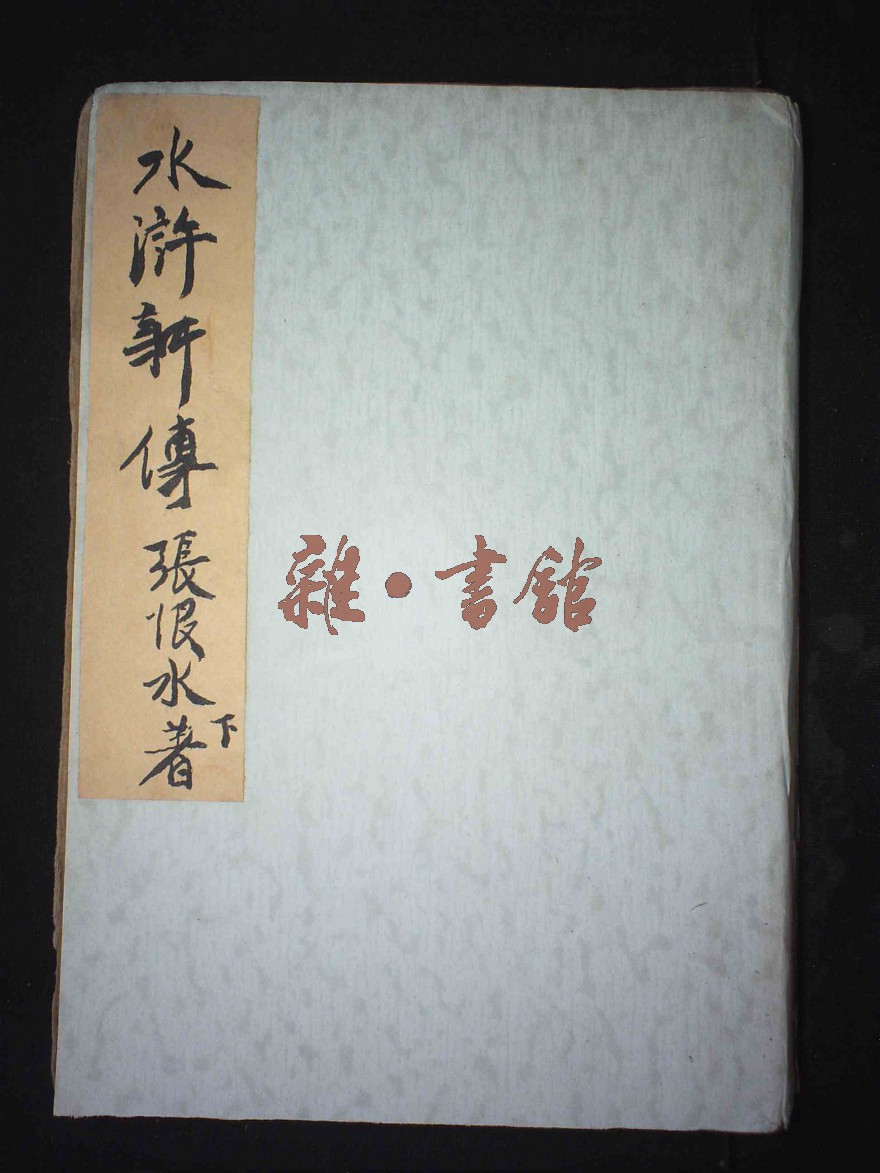 水滸新傳 張恨水著 下
雜·書館